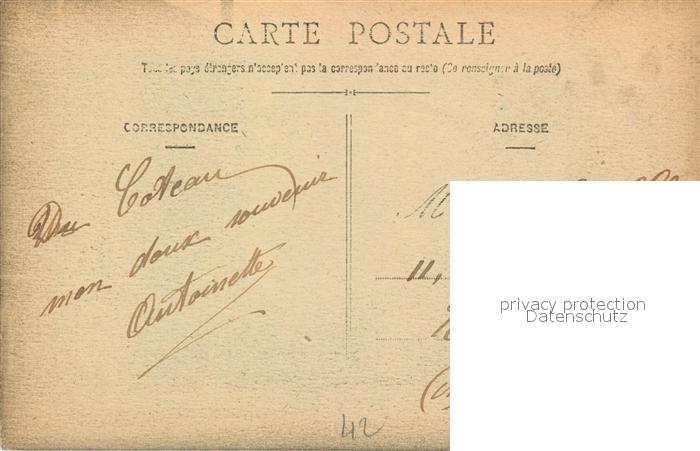 CARTE POSTALE
Tous les pays étrangers n'acceptent pas la correspondance au recto (Se renseigner à la poste)
CORRESPONDANCE
ADRESSE
Du Coteau
mon doux souvenir
Antoinette
M
11,
privacy protection
Datenschutz
42